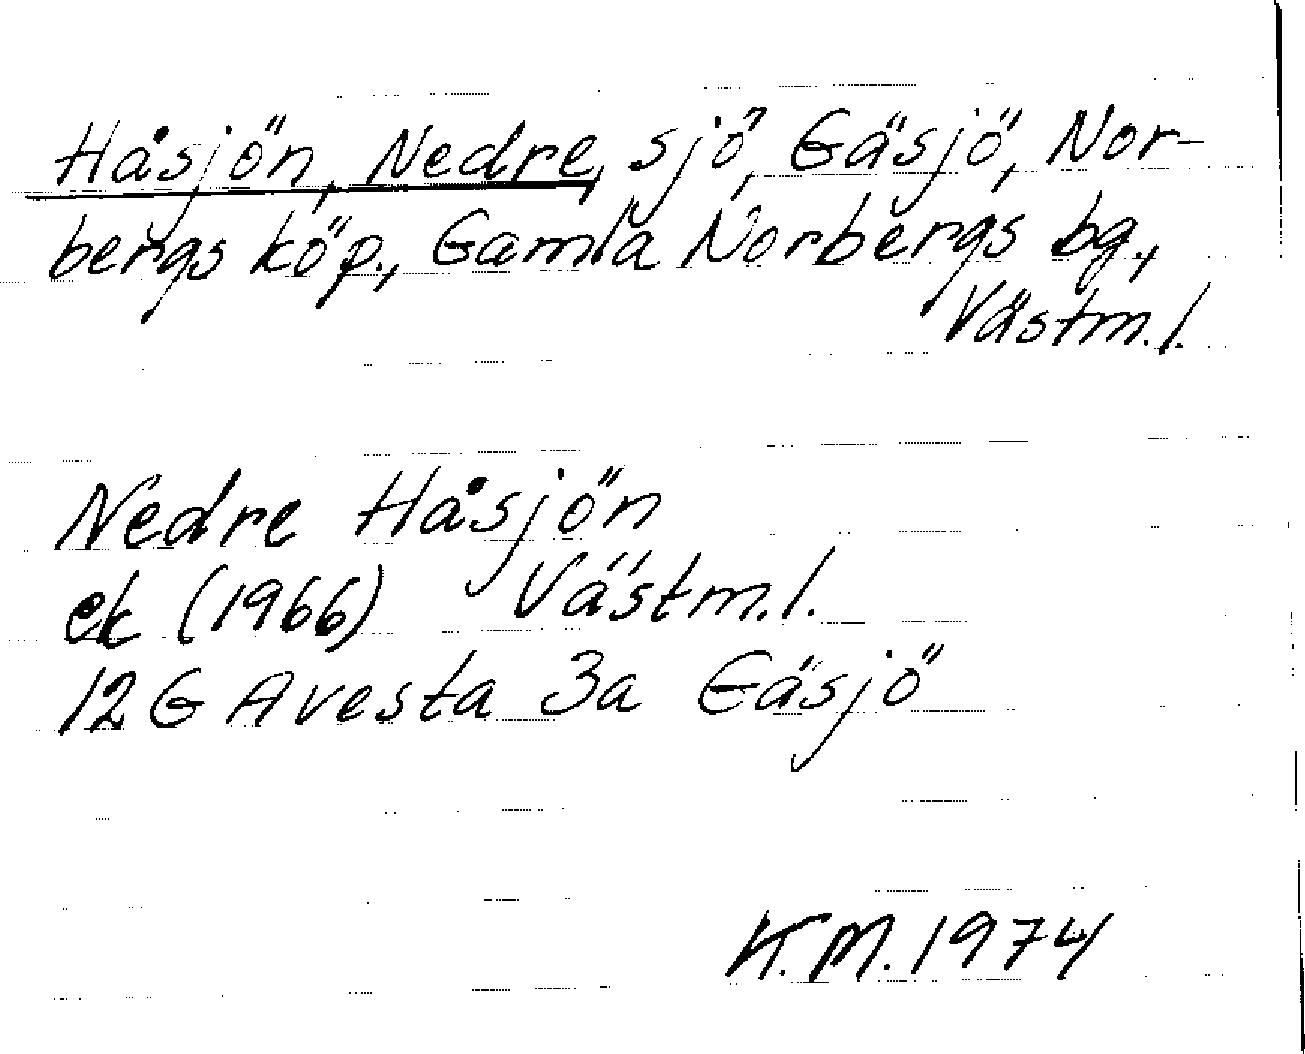 Håsjön, Nedre, sjö, Gäsjö, Nor-
bergs köp., Gamla Norbergs bg.,
Västm.l.
Nedre Håsjön
ek (1966) Västm.l.
12 G Avesta 3a Gäsjö
K.M. 1974